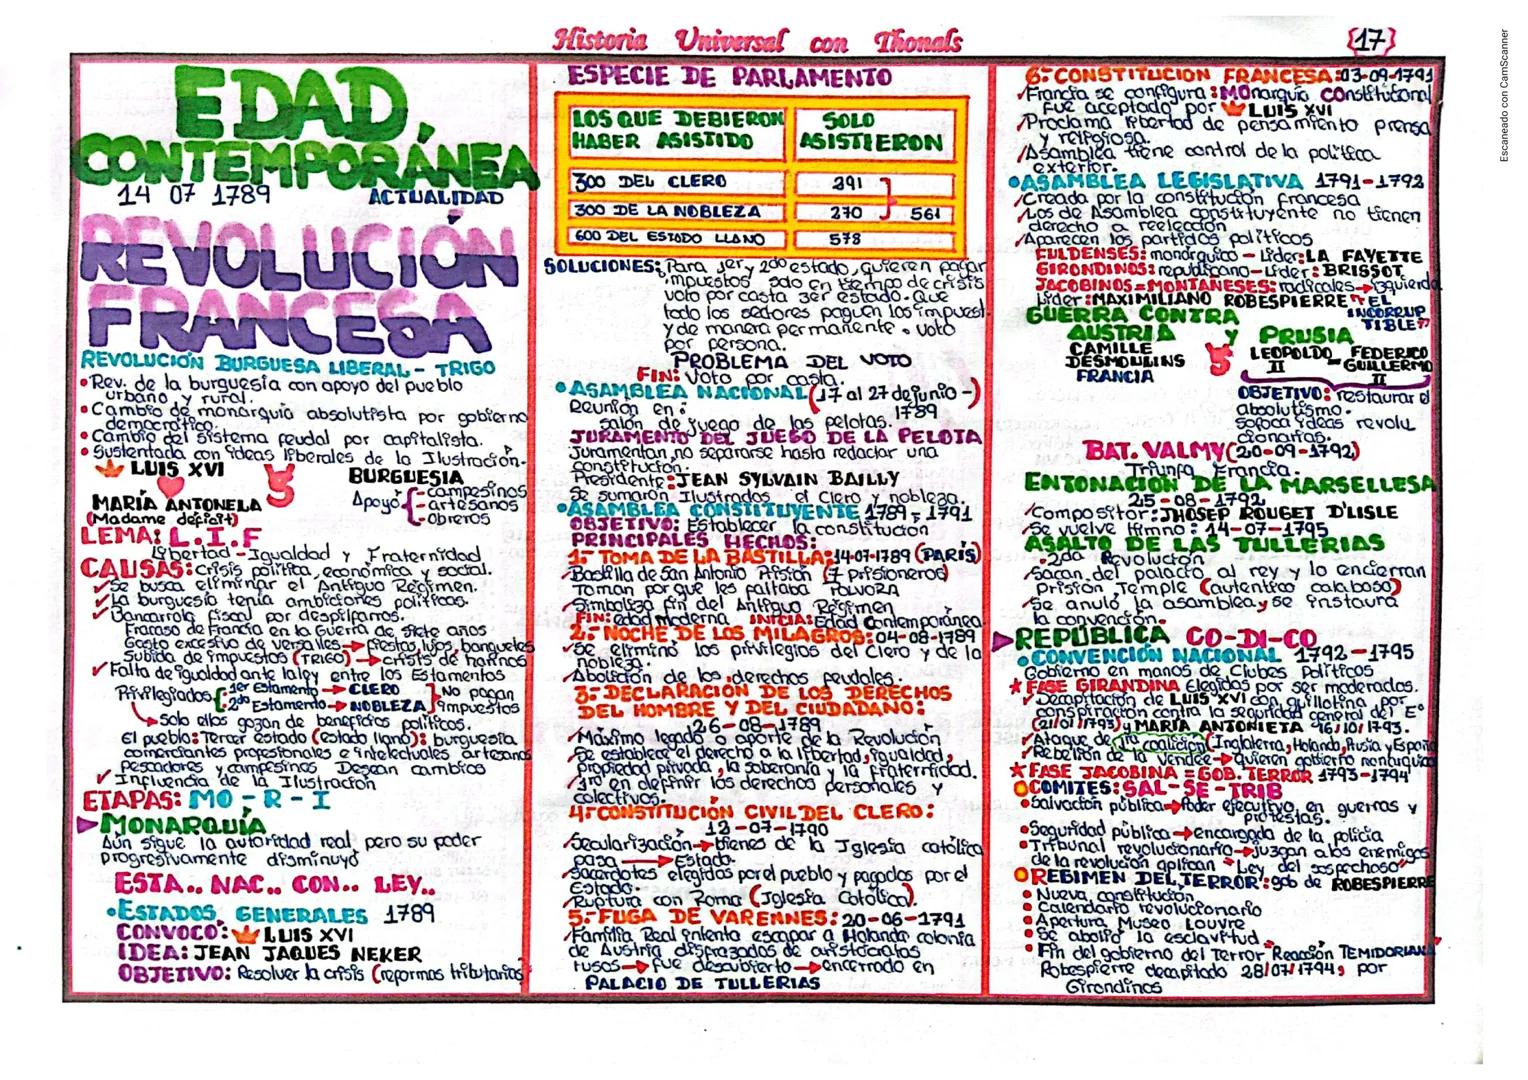 Historia Universal con Thonals
{17}
EDAD
CONTEMPORÁNEA
14 07 1789 ACTUALIDAD
REVOLUCIÓN
FRANCESA
REVOLUCIÓN BURGUESA LIBERAL - TRIGO
• Rev. de la burguesía con apoyo del pueblo
urbano y rural.
• Cambio de monarquía absolutista por gobierno
democrático.
• Cambio del sistema feudal por capitalista.
• Sustentada con ideas liberales de la Ilustración.
LUIS XVI
MARÍA ANTONELA
(Madame déficit)
BURGUESIA
Apoyo
- campesinos
- artesanos
- obreros
LEMA: L.I.F
Libertad - Igualdad y Fraternidad
CAUSAS: crisis política, económica y social.
✓ Se busca eliminar el Antiguo Régimen.
✓ La burguesía tenía ambiciones políticas.
✓ Bancarrota fiscal por despilfarros.
Fracaso de Francia en la Guerra de Siete años.
Gasto excesivo de versalles → fiestas, lujos, banquetes
Subida de impuestos (TRIGO) → crisis de harinas
✓ Falta de igualdad ante la ley entre los Estamentos
Privilegiados { 1er Estamento → CLERO
2do Estamento → NOBLEZA } No pagan impuestos
→ Solo ellos gozan de beneficios políticos.
El pueblo: Tercer estado (estado llano): burguesía
comerciantes profesionales e intelectuales artesanos
Pescadores y campesinos Desean cambios
✓ Influencia de la Ilustración
ETAPAS: MO - R - I
MONARQUÍA
Aún sigue la autoridad real pero su poder
progresivamente disminuyó
ESTA.. NAC.. CON.. LEY..
• ESTADOS GENERALES 1789
CONVOCO: LUIS XVI
IDEA: JEAN JAQUES NEKER
OBJETIVO: Resolver la crisis (reformas tributarias)
ESPECIE DE PARLAMENTO
LOS QUE DEBIERON HABER ASISTIDO SOLO ASISTIERON
300 DEL CLERO 291
300 DE LA NOBLEZA 270 561
600 DEL ESTADO LLANO 578
SOLUCIONES: Para 1er y 2do estado, quieren pagar
impuestos solo en tiempo de crisis
voto por casta 3er estado. Que
todo los sectores paguen los impuest.
y de manera permanente. voto
por persona.
PROBLEMA DEL VOTO
FIN: Voto por casta.
• ASAMBLEA NACIONAL (17 al 27 de junio -)
1789
Reunión en:
salón de juego de las pelotas.
JURAMENTO DEL JUEGO DE LA PELOTA
Juramentan no separarse hasta redactar una
constitución.
Presidente: JEAN SYLVAIN BAILLY
Se sumaron Ilustrados el Clero y nobleza.
• ASAMBLEA CONSTITUYENTE 1789 - 1791
OBJETIVO: Establecer la constitución
PRINCIPALES HECHOS:
1.- TOMA DE LA BASTILLA: 14-07-1789 (PARÍS)
Bastilla de San Antonio Prisión (7 prisioneros)
Toman por que les faltaba PÓLVORA
Simboliza fin del Antiguo Régimen
FIN: edad moderna INICIA: Edad Contemporánea.
2.- NOCHE DE LOS MILAGROS: 04-08-1789
✓ Se eliminó los privilegios del Clero y de la
nobleza.
✓ Abolición de los derechos feudales.
3.- DECLARACIÓN DE LOS DERECHOS
DEL HOMBRE Y DEL CIUDADANO:
26-08-1789
✓ Máximo legado o aporte de la Revolución
✓ Se establece el derecho a la libertad, igualdad,
propiedad privada, la soberanía y la fraternidad.
✓ 1ro en definir los derechos personales y
colectivos.
4.- CONSTITUCIÓN CIVIL DEL CLERO:
12-07-1790
✓ Secularización → bienes de la Iglesia católica
pasa → Estado.
✓ Sacerdotes elegidos por el pueblo y pagados por el
Estado.
✓ Ruptura con Roma (Iglesia Católica).
5.- FUGA DE VARENNES: 20-06-1791
✓ Familia Real intenta escapar a Holanda colonia
de Austria disfrazados de aristócratas
rusos → fue descubierto → encerrado en
PALACIO DE TULLERIAS
6.- CONSTITUCION FRANCESA: 03-09-1791
✓ Francia se configura: MOnarquía COnstitucional
fue aceptado por LUIS XVI
✓ Proclama libertad de pensamiento prensa
y religiosa.
✓ Asamblea tiene control de la política
exterior.
• ASAMBLEA LEGISLATIVA 1791-1792
✓ Creada por la constitución francesa
✓ Los de Asamblea constituyente no tienen
derecho a reelección
✓ Aparecen los partidos políticos
FULDENSES: monárquico - Líder: LA FAYETTE
GIRONDINOS: republicano - Líder: BRISSOT
JACOBINOS = MONTAÑESES: radicales → izquierda
Líder: MAXIMILIANO ROBESPIERRE "EL
INCORRUP
TIBLE"
GUERRA CONTRA
AUSTRIA Y PRUSIA
CAMILLE
DESMOULLINS
FRANCIA
LEOPOLDO II - FEDERICO GUILLERMO II
OBJETIVO: restaurar el
absolutismo.
sofoca ideas revolu
cionarias.
BAT. VALMY (20-09-1792)
Triunfa Francia.
ENTONACIÓN DE LA MARSELLESA
25-08-1792
✓ Compositor: JHOSEP ROUGET D'LISLE
✓ Se vuelve Himno: 14-07-1795
ASALTO DE LAS TULLERIAS
✓ 2da Revolución
✓ Sacan del palacio al rey y lo encierran
Prisión Temple (auténtico calabozo)
✓ Se anuló la asamblea y se instaura
la convención.
REPÚBLICA CO-DI-CO
• CONVENCIÓN NACIONAL 1792-1795
Gobierno en manos de Clubes Políticos
★ FASE GIRANDINA Elegidos por ser moderados.
✓ Decapitación de LUIS XVI con guillotina por
conspiración contra la seguridad general del Eº
(21/01/1793) y MARÍA ANTONIETA 16/10/1793.
✓ Ataque de 1ra coalición (Inglaterra, Holanda, Prusia y España
✓ Rebelión de la Vendée → quieren gobierno monárquico
★ FASE JACOBINA = GOB. TERROR 1793-1794
COMITES: SAL-SE-TRIB
• Salvación pública → Poder ejecutivo, en guerras y
protestas.
• Seguridad pública → encargada de la policía
• Tribunal revolucionario → juzgan a los enemigos
de la revolución aplican "Ley del sospechoso"
REGIMEN DEL TERROR: gob de ROBESPIERRE
• Nueva constitución
• Calendario revolucionario
• Apertura Museo Louvre
• Se abolió la esclavitud
• Fin del gobierno del Terror "Reacción TEMIDORIANA"
Robespierre decapitado 28/07/1794, por
Girondinos
Escaneado con CamScanner